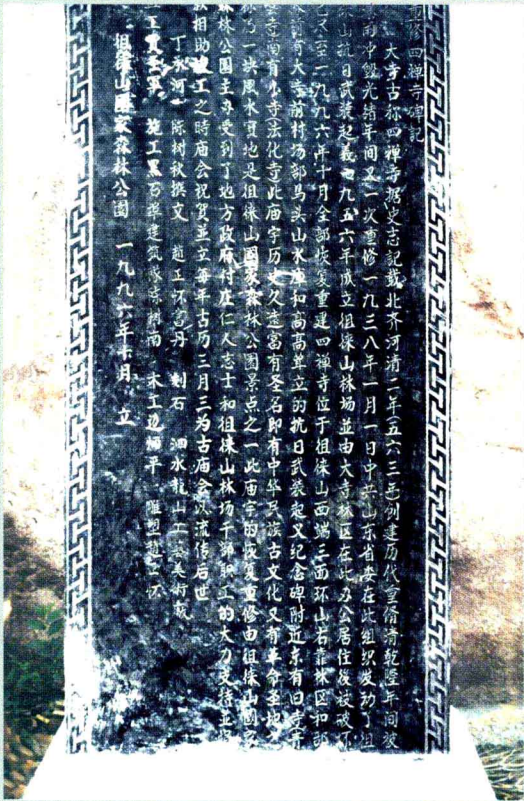 重修四禅寺碑记
大寺古称四禅寺据史志记载北齐河清二年(五六三年)创建历代重修清乾隆年间被
雨冲毁光绪年间又一次重修一九三八年一月一日中共山东省委在此组织发动了徂
徕山抗日武装起义一九五六年成立徂徕山林场並由大寺林区在此办公居住後被破坏
至一九九六年十月全部恢复重建四禅寺位于徂徕山西端三面环山右靠林区和部
前有大寺前村场部马头山水库和高高耸立的抗日武装起义纪念碑附近东有旧寺
寺南有小寺法化寺此庙宇历史久远富有圣名即有中华民族古文化又有革命圣地
乃一块风水宝地是徂徕山国家森林公园景点之一此庙宇的恢复重修由徂徕山国家
森林公园主办受到了地方政府付庄仁人志士和徂徕山林场干部职工的大力支持並
相助竣工之时庙会祝贺並立每年古历三月三为古庙会以流传后世
丁永河 陈树秋撰文 赵玉怀书丹 刻石 泗水龙山工艺美术
施工 建筑队 木工 雕塑赵玉怀
徂徕山国家森林公园 一九九六年十月 立